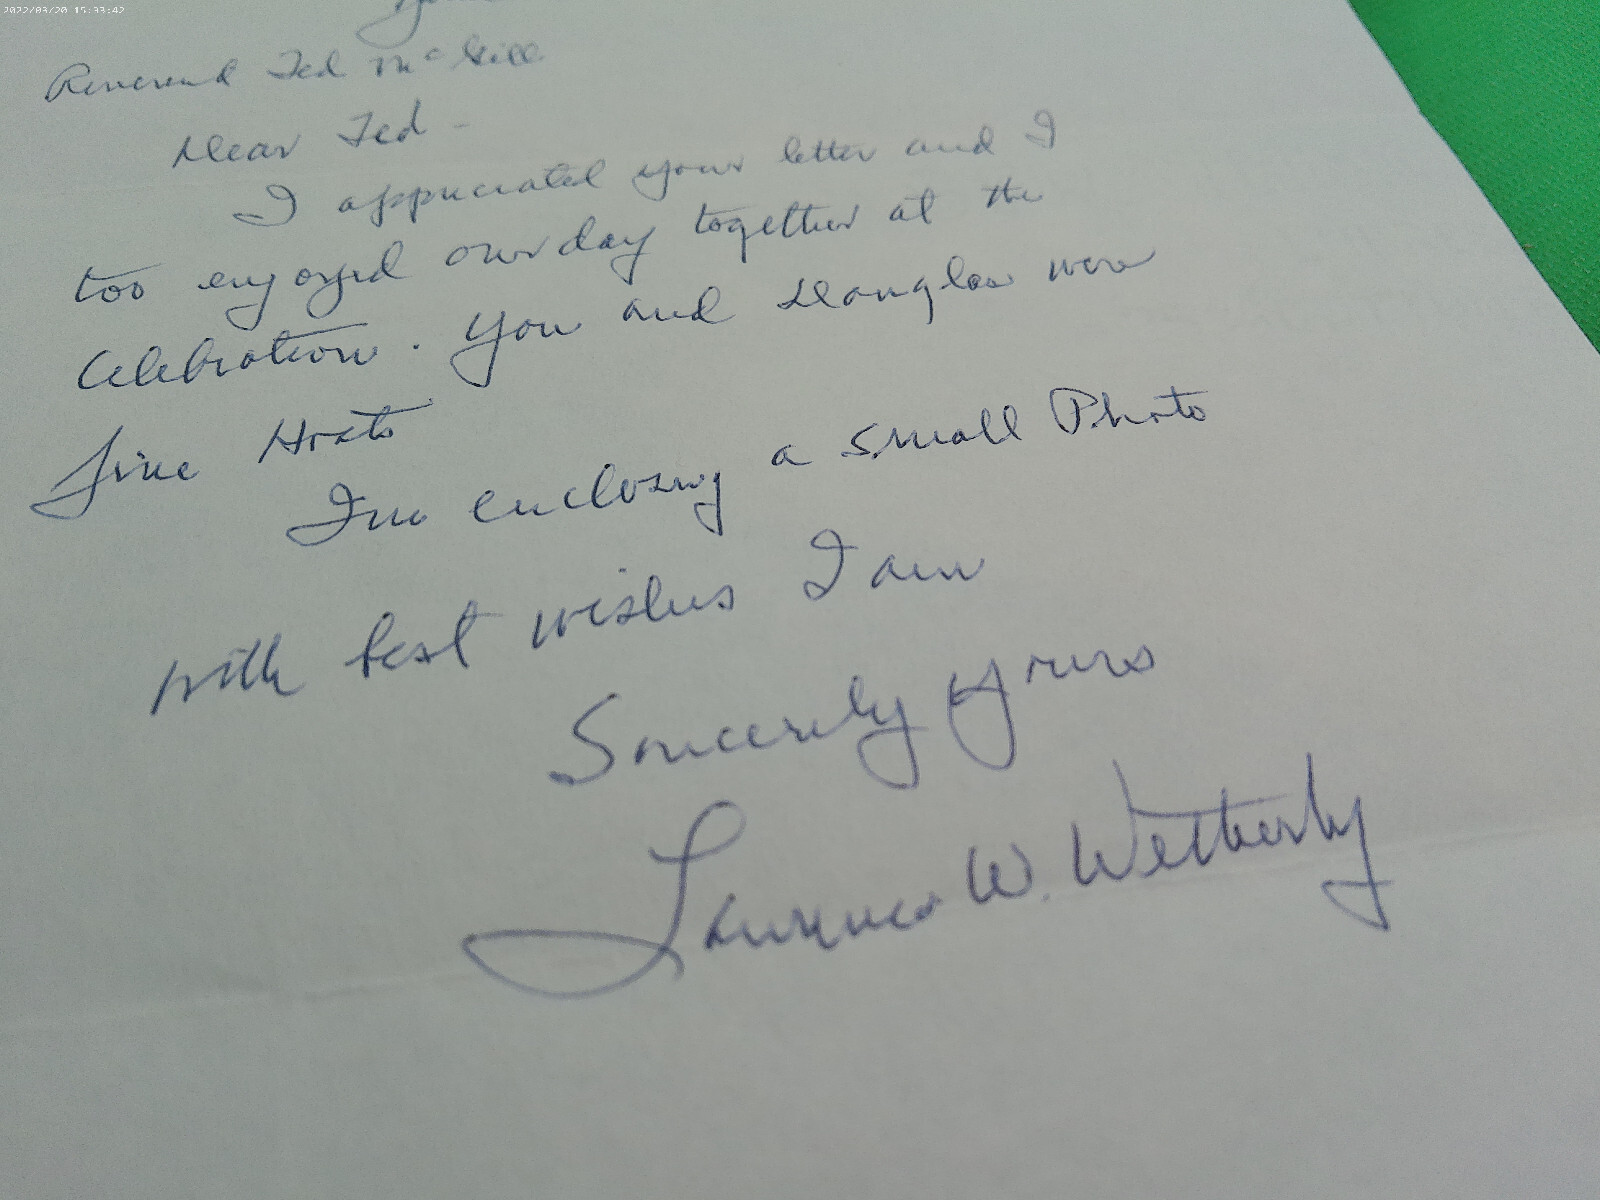 2022/03/20 15:33:42
Reverend Ted McGill
Dear Ted -
I appreciated your letter and I
too enjoyed our day together at the
Celebration. You and Douglas were
fine Hosts
I'm enclosing a small Photo
with best wishes I am
Sincerely Yours
Lawrence W. Wetherby